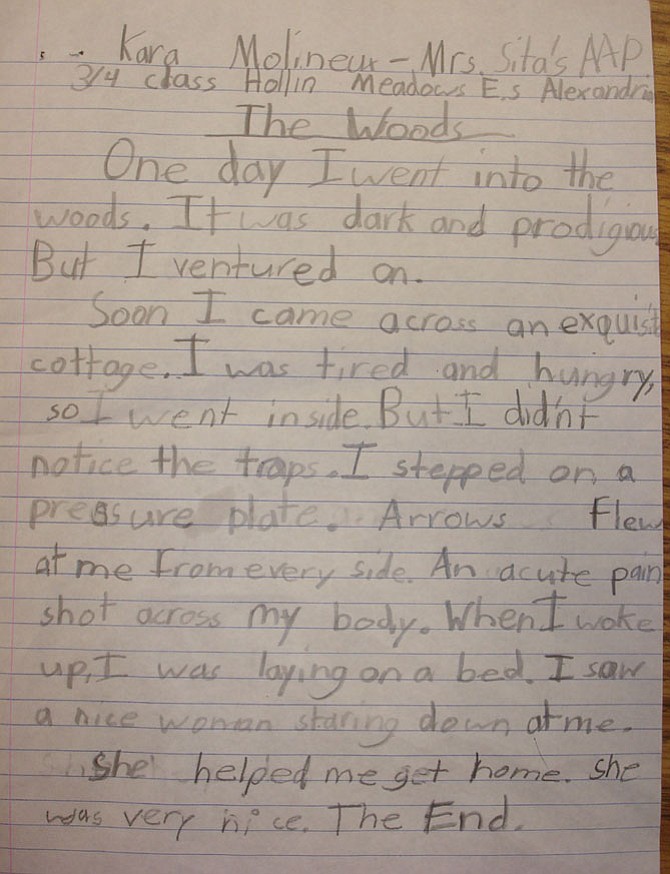 Kara Molineux - Mrs. Sita's AAP
3/4 class Hollin Meadows E.s Alexandria
The Woods
One day I went into the
woods. It was dark and prodigious
But I ventured on.
Soon I came across an exquisit
cottage. I was tired and hungry,
so I went inside. But I didn't
notice the traps. I stepped on a
pressure plate. Arrows flew
at me from every side. An acute pain
shot across my body. When I woke
up, I was laying on a bed. I saw
a nice woman staring down at me.
She helped me get home. She
was very nice. The End.